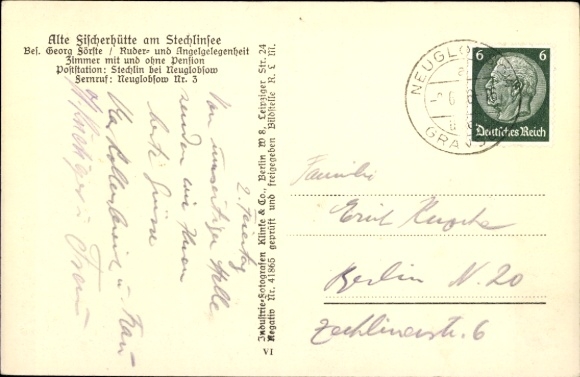 Alte Fischerhütte am Stechlinsee
Bes. Georg Förste / Ruder- und Angelgelegenheit
Zimmer mit und ohne Pension
Poststation: Stechlin bei Neuglobsow
Fernruf: Neuglobsow Nr. 3
2. Feiertag
Von unseitiger Stelle
senden wir Ihnen
beste Grüsse
u. Frau
u. Frau
Industrie-Fotografen Klinke & Co., Berlin W 8, Leipziger Str. 24
Negativ Nr. 41865 geprüft und freigegeben Bildstelle R L M.
VI
NEUGLO
GRANS
6 6
Deutsches Reich
Familie
Erich
Berlin N. 20
Zechlinerstr. 6